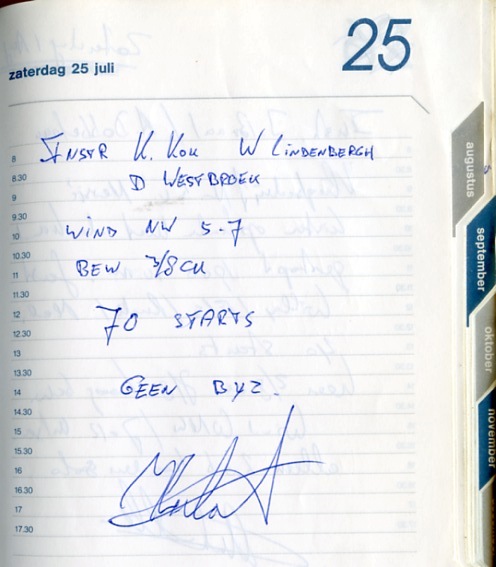 zaterdag 25 juli
25
8
INSTR K. KOK W LINDENBERGH
8.30
D WESTBROEK
9
9.30
WIND NW 5-7
10
10.30
BEW 3/8 CU
11
11.30
12
70 STARTS
12.30
13
13.30
GEEN BYZ.
14
14.30
15
15.30
16
16.30
17
17.30
augustus
september
oktober
november